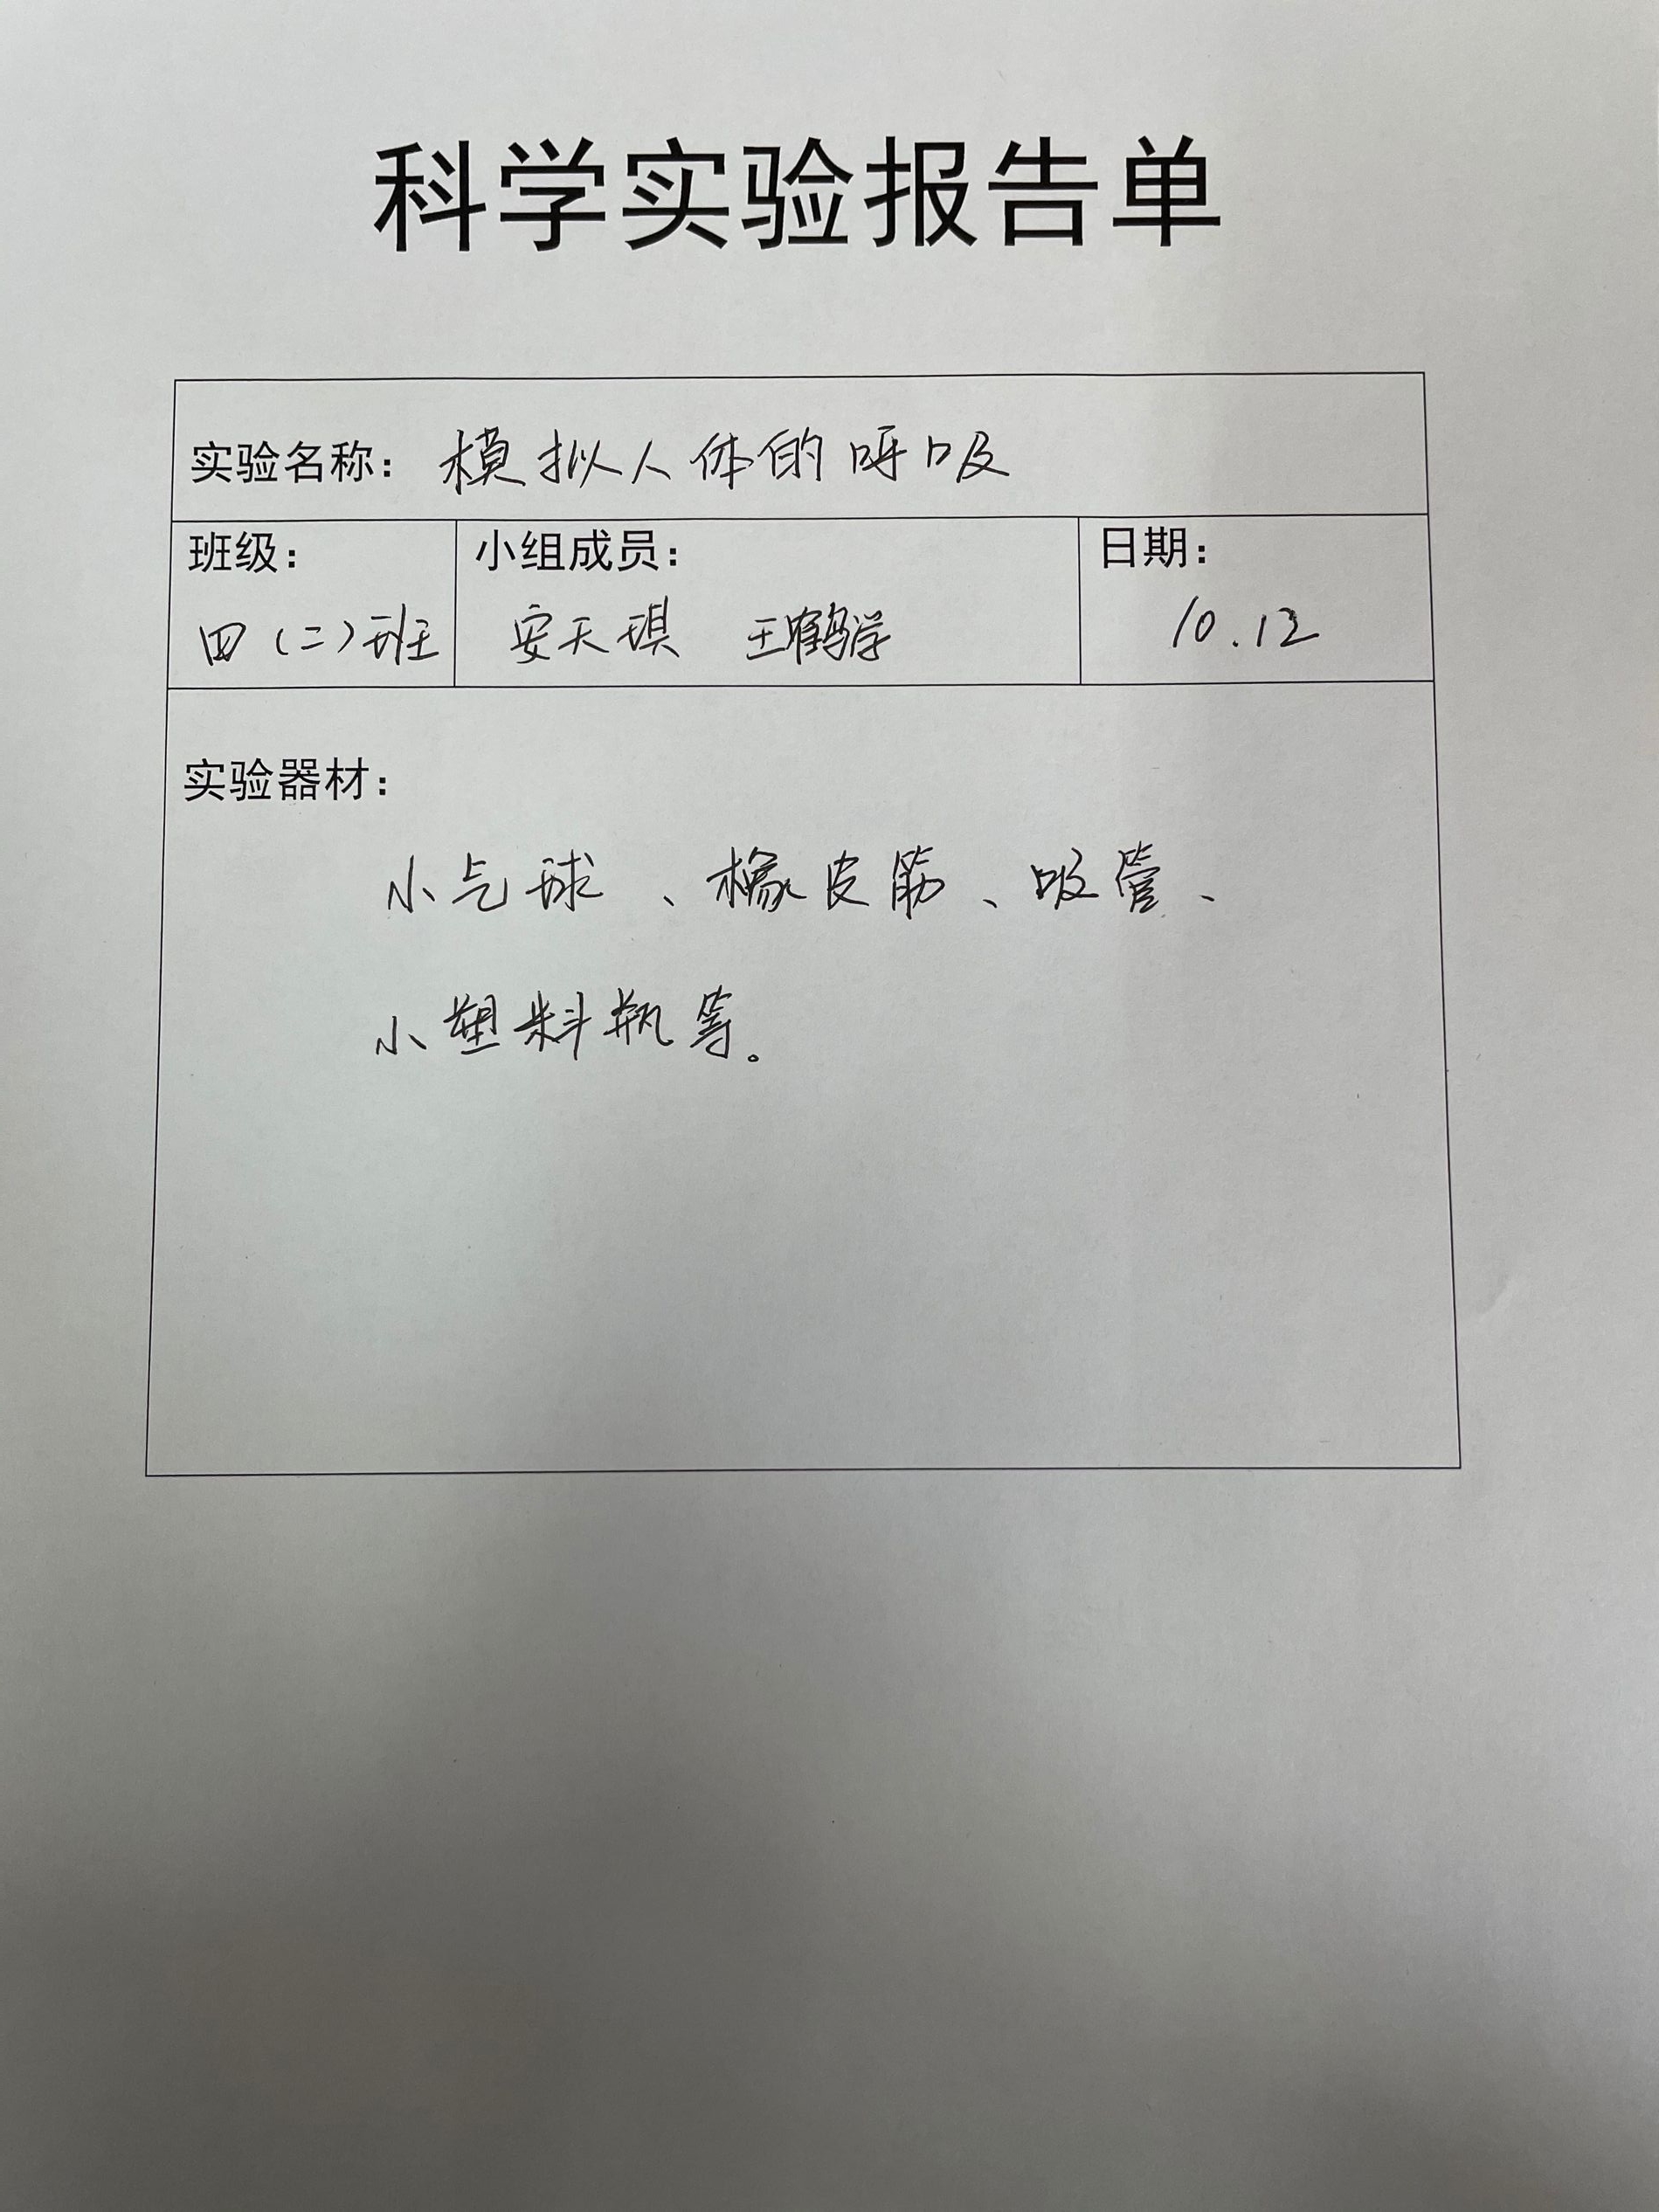 科学实验报告单
实验名称：模拟人体的呼吸
班级： 小组成员： 日期：
四（二）班 安天琪 王鹤学 10.12
实验器材：
小气球、橡皮筋、吸管、
小塑料瓶等。